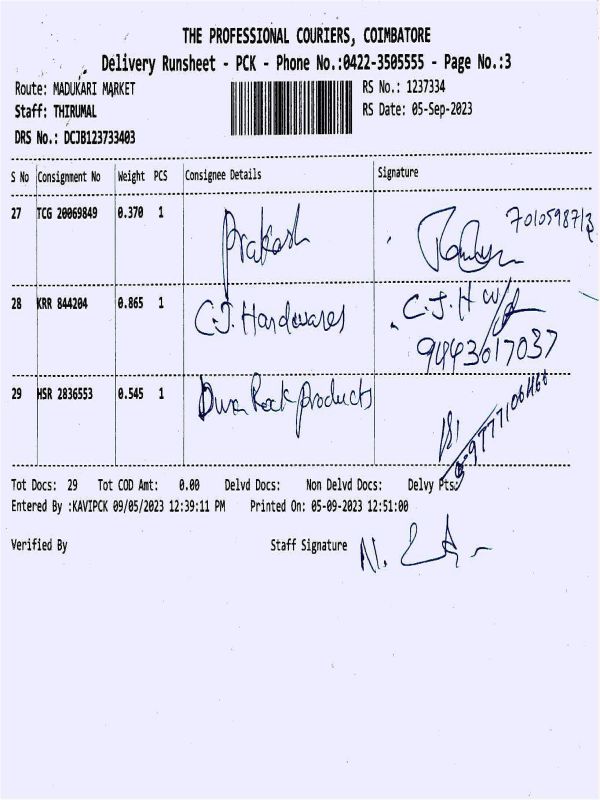 THE PROFESSIONAL COURIERS, COIMBATORE
Delivery Runsheet - PCK - Phone No.:0422-3505555 - Page No.:3
Route: MADUKARI MARKET RS No.: 1237334
Staff: THIRUMAL RS Date: 05-Sep-2023
DRS No.: DCJB123733403
S No Consignment No Weight PCS Consignee Details Signature
27 TCG 20069849 0.370 1 Prakash
28 KRR 844204 0.865 1 C.J. Hardwares C.J.H
9443617037
29 HSR 2836553 0.545 1 Rock products
Tot Docs: 29 Tot COD Amt: 0.00 Delvd Docs: Non Delvd Docs: Delvy Pts:
Entered By :KAVIPCK 09/05/2023 12:39:11 PM Printed On: 05-09-2023 12:51:00
Verified By Staff Signature N.